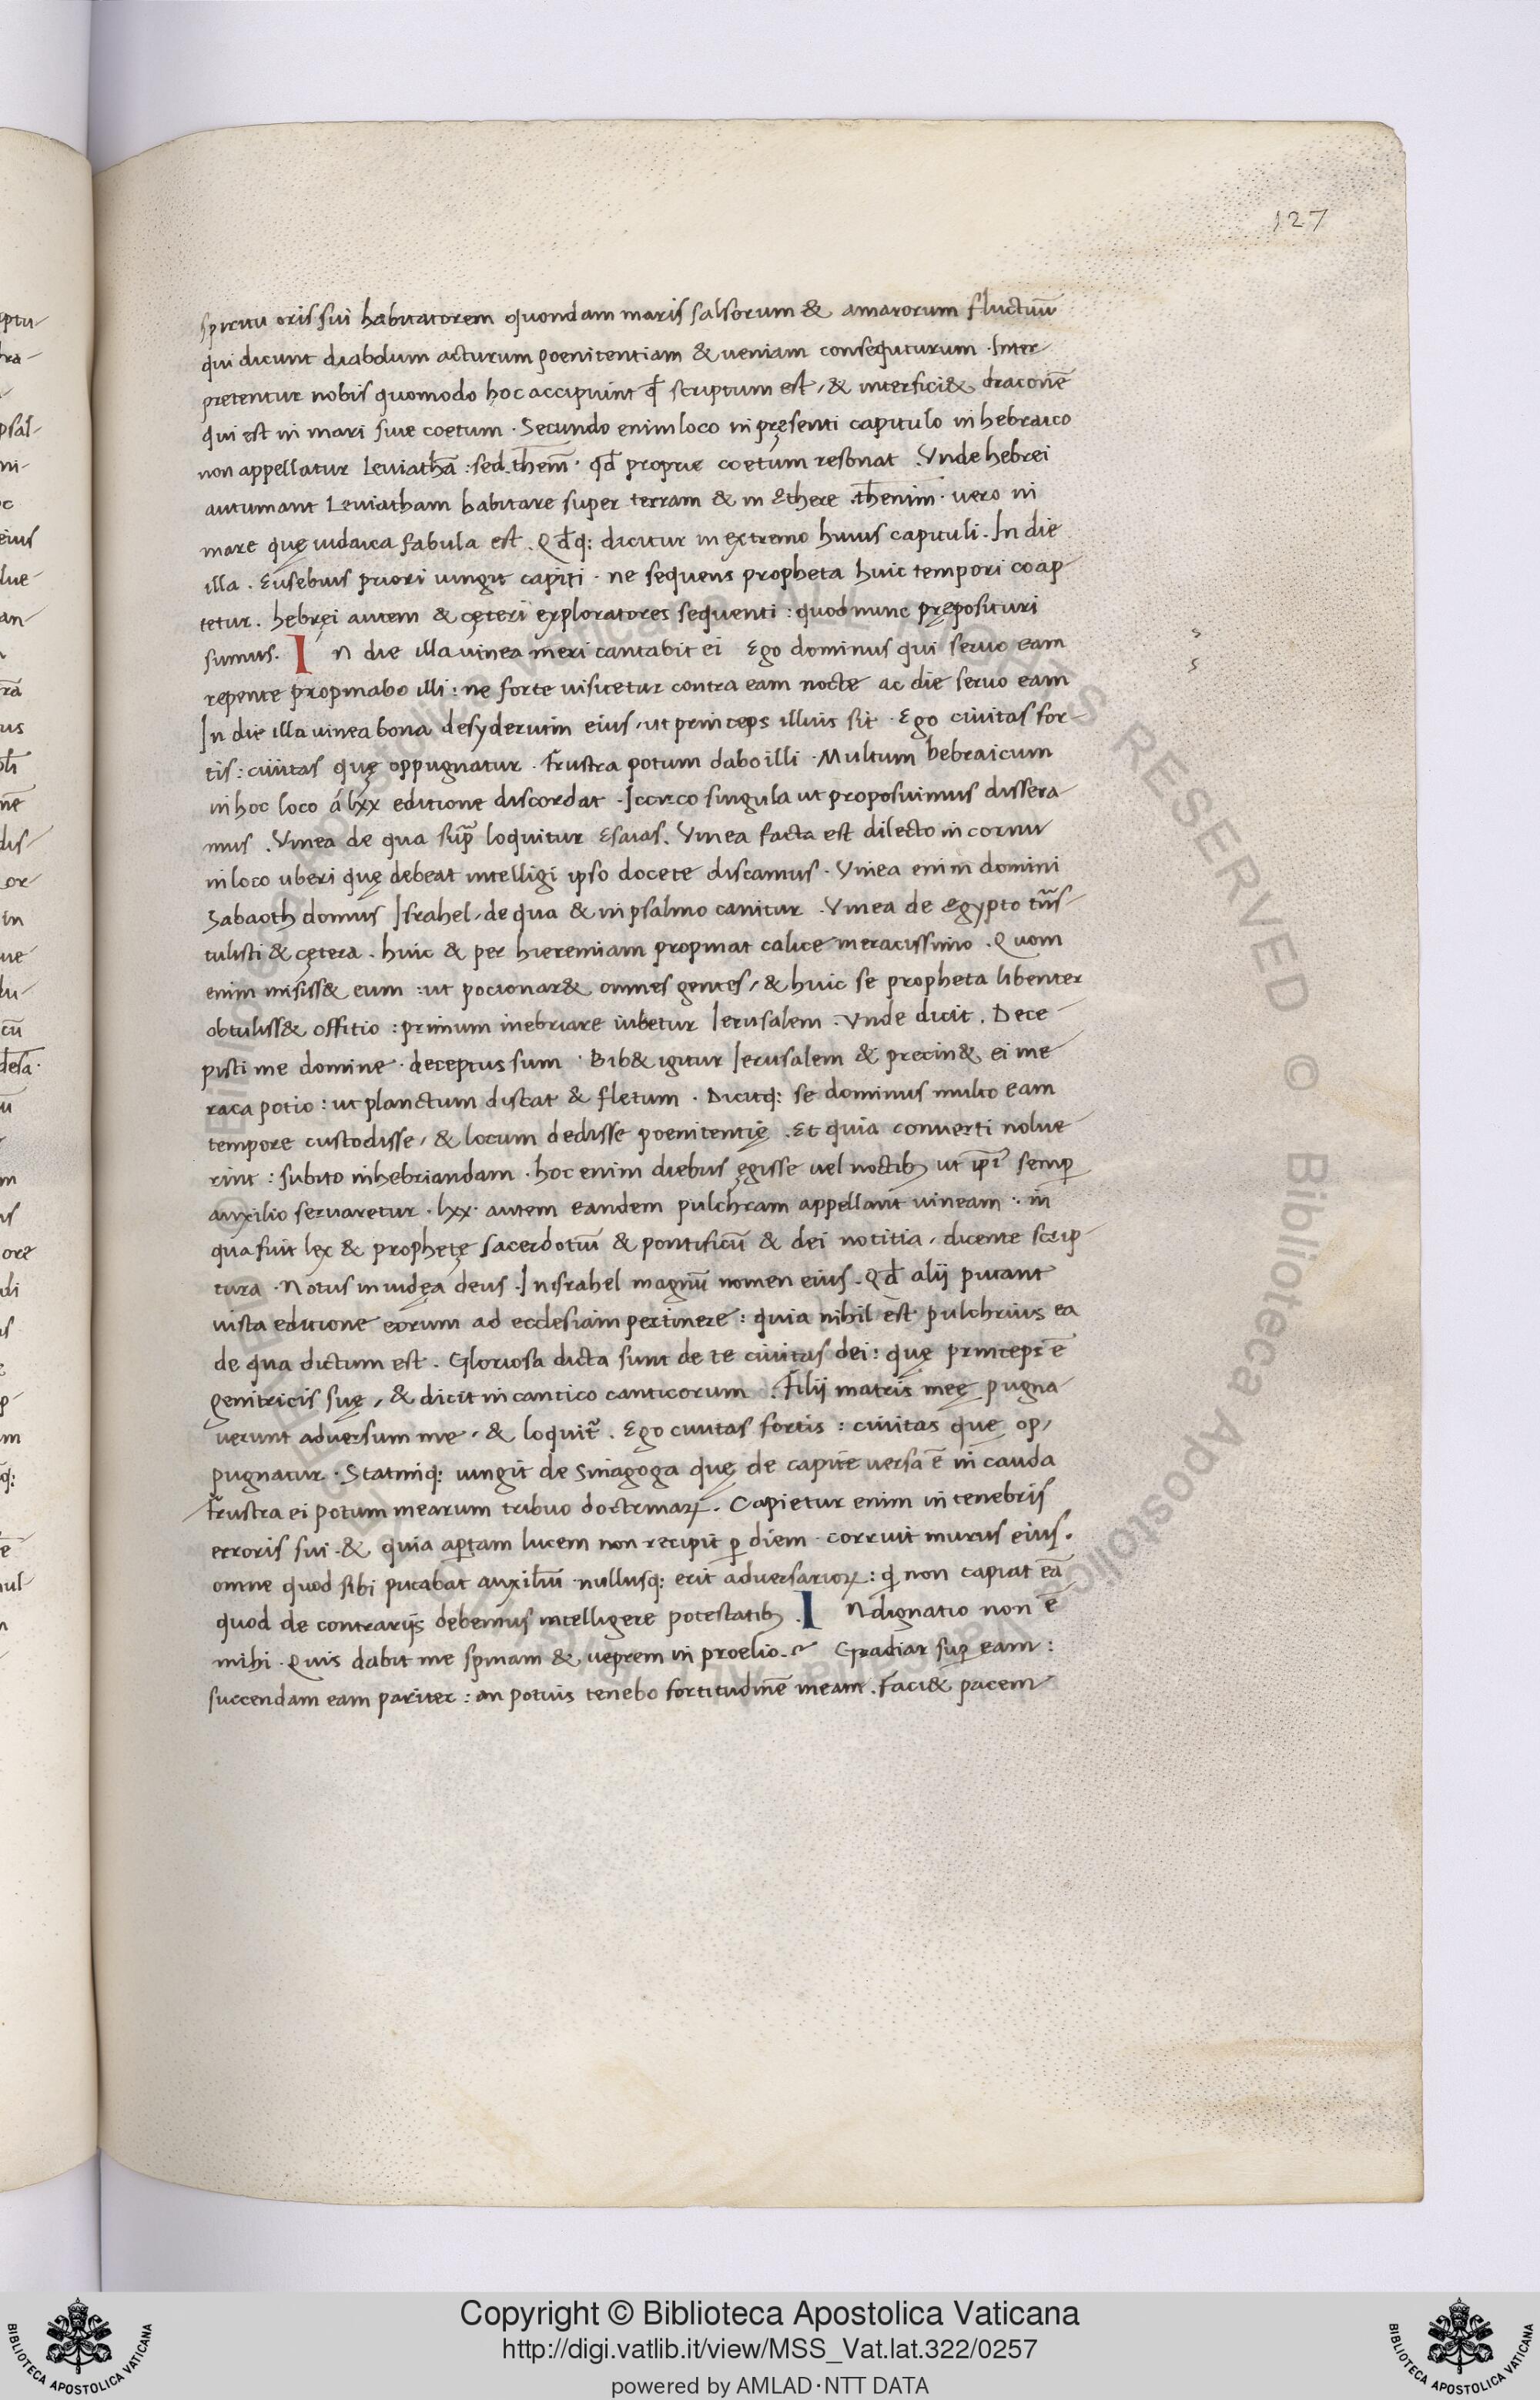 127
spiritu oris sui habitatorem quondam maris salsorum & amarorum fluctuū
qui dicunt diabolum acturum poenitentiam & ueniam consequturum · Inter
pretentur nobis quomodo hoc accipiunt qđ scriptum est, & interfici& draconē
qui est in mari siue coetum · Secundo enim loco in pręsenti capitulo in hebraico
non appellatur Leuiathā : sed . thenī · qđ proprie coetum resonat . Vnde hebrei
autumant Leuiatham habitare super terram & in ethere . thenim · uero in
mare quę iudaica fabula est . Qđq: dicitur in extremo huius capituli . In die
illa . Eusebius priori iungit capiti · ne sequens propheta huic tempori coap
tetur . hebręi autem & cęteri exploratores sequenti : quod nunc pręposituri
sumus . In die illa uinea meri cantabit ei Ego dominus qui seruo eam
repente propinabo illi : ne forte uisitetur contra eam nocte ac die seruo eam
In die illa uinea bona desyderium eius, ut princeps illius sit · Ego ciuitas for-
tis : ciuitas quę oppugnatur . Frustra potum dabo illi · Multum hebraicum
in hoc loco á lxx editione discordat . Iccirco singula ut proposuimus dissera
mus . Vinea de qua sup̄ loquitur Esaias . Vinea facta est dilecto in cornu
in loco uberi quę debeat intelligi ipso docēte discamus · Vinea enim domini
Sabaoth domus Israhel, de qua & in psalmo canitur . Vinea de Egypto trās-
tulisti & cętera . huic & per hieremiam propinat calice meracissimo . Quom
enim misiss& eum : ut pocionar& omnes gentes, & huic se propheta libenter
obtuliss& offitio : primum inebriare iubetur Ierusalem . Vnde dicit . Dece-
pisti me domine · deceptus sum · Bib& igitur Ierusalem & precin& ei me
raca potio : ut planctum discat & fletum . Dicitq: se dominus multo eam
tempore custodisse, & locum dedisse poenitentię . Et quia conuerti nolue
rint : subito inhebriandam . hoc enim diebus ęgisse uel noctib; ut semp
auxilio seruaretur . lxx · autem eandem pulchram appellant uineam : in
qua fuit lex & prophetę sacerdotiū & pontificū & dei notitia, dicente scrip-
tura · Notus in iudęa deus . In israhel magnū nomen eius . Qđ alij putant
iuxta editione eorum ad ecclesiam pertinere : quia nihil est pulchrius ea
de qua dictum est . Gloriosa dicta sunt de te ciuitas dei : quę princeps ē
genitricis suę, & dicit in cantico canticorum . Filij matris meę pugna-
uerunt aduersum me, & loquit̄ . Ego ciuitas fortis : ciuitas que op,
pugnatur . Statimq: iungit de Sinagoga quę de capite uersa ē in cauda
Frustra ei potum mearum tribuo doctrinarꝝ . Capietur enim in tenebris
erroris sui . & quia aptam lucem non recipit p diem · corruit murus eius .
omne quod sibi putabat auxiliū · nullusq: erit aduersariorꝝ : q non capiat eā
quod de contrarijs debemus intelligere potestatib; . Indignatio non ē
mihi . Quis dabit me spinam & ueprem in proelio . Gradiar sup eam :
succendam eam pariter : an potius tenebo fortitudinē meam . Faci& pacem
Copyright © Biblioteca Apostolica Vaticana
http://digi.vatlib.it/view/MSS_Vat.lat.322/0257
powered by AMLAD·NTT DATA